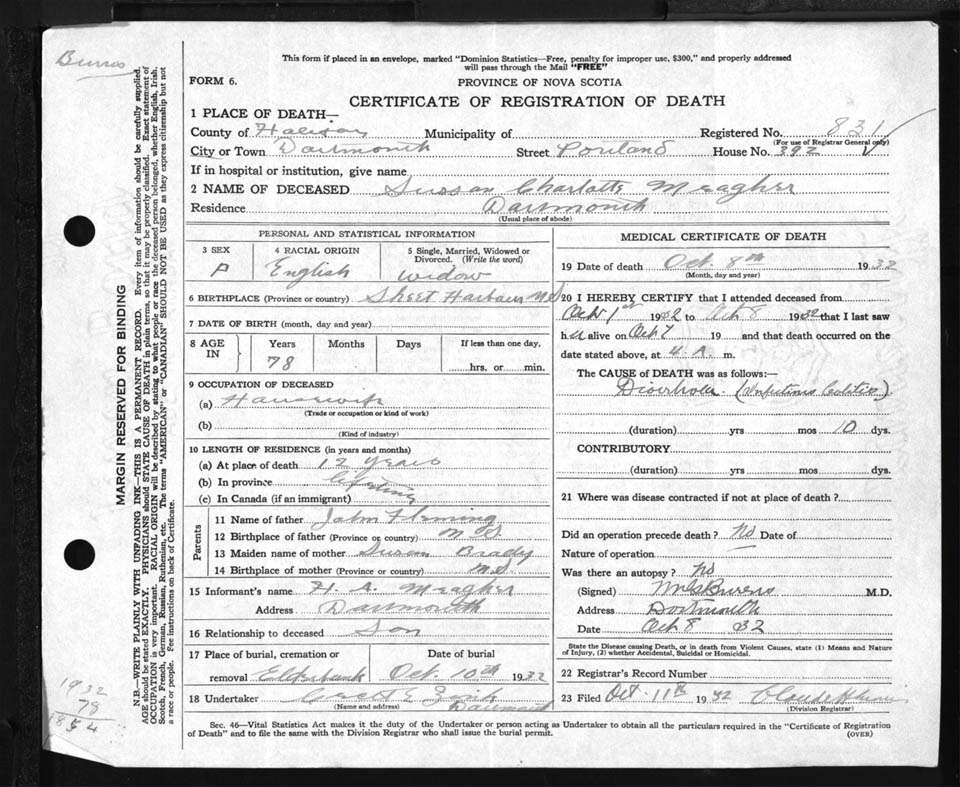 Burns
This form if placed in an envelope, marked "Dominion Statistics—Free, penalty for improper use, $300," and properly addressed
will pass through the Mail "FREE"
FORM 6.
PROVINCE OF NOVA SCOTIA
CERTIFICATE OF REGISTRATION OF DEATH
1 PLACE OF DEATH—
County of Halifax Municipality of Registered No. 831
(For use of Registrar General only)
City or Town Dartmouth Street Portland House No. 392
If in hospital or institution, give name
2 NAME OF DECEASED Susan Charlotte Meagher
Residence Dartmouth
(Usual place of abode)
PERSONAL AND STATISTICAL INFORMATION
3 SEX 4 RACIAL ORIGIN 5 Single, Married, Widowed or
Divorced. (Write the word)
English widow
6 BIRTHPLACE (Province or country) Sheet Harbour N.S.
7 DATE OF BIRTH (month, day and year)
8 AGE IN Years Months Days If less than one day,
78 hrs. or min.
9 OCCUPATION OF DECEASED
(a) Housewife
(Trade or occupation or kind of work)
(b)
(Kind of industry)
10 LENGTH OF RESIDENCE (in years and months)
(a) At place of death 12 years
(b) In province lifetime
(c) In Canada (if an immigrant)
Parents
11 Name of father John Fleming
12 Birthplace of father (Province or country) N S.
13 Maiden name of mother Susan Brady
14 Birthplace of mother (Province or country) N.S.
15 Informant's name H. A. Meagher
Address Dartmouth
16 Relationship to deceased Son
17 Place of burial, cremation or Date of burial
removal Elderbank Oct. 10th 1932
18 Undertaker
(Name and address) Dartmouth
MEDICAL CERTIFICATE OF DEATH
19 Date of death Oct. 8th 1932
(Month, day and year)
20 I HEREBY CERTIFY that I attended deceased from
Oct 1st 1932 to Oct 8 1932 that I last saw
h er alive on Oct 7 19 and that death occurred on the
date stated above, at 4 A. m.
The CAUSE of DEATH was as follows:—
Diarrhoea (Infectious Colitis)
(duration) yrs mos 10 dys.
CONTRIBUTORY
(duration) yrs mos dys.
21 Where was disease contracted if not at place of death?
Did an operation precede death? No Date of
Nature of operation
Was there an autopsy? No
(Signed) M.D.
Address Dartmouth
Date Oct 8 32
State the Disease causing Death, or in death from Violent Causes, state (1) Means and Nature
of Injury, (2) whether Accidental, Suicidal or Homicidal.
22 Registrar's Record Number
23 Filed Oct. 11th 1932
(Division Registrar)
Sec. 46—Vital Statistics Act makes it the duty of the Undertaker or person acting as Undertaker to obtain all the particulars required in the "Certificate of Registration
of Death" and to file the same with the Division Registrar who shall issue the burial permit. (OVER)
MARGIN RESERVED FOR BINDING
N.B.—WRITE PLAINLY WITH UNFADING INK—THIS IS A PERMANENT RECORD. Every item of information should be carefully supplied.
AGE should be stated EXACTLY. PHYSICIANS should STATE CAUSE OF DEATH in plain terms, so that it may be properly classified. Exact statement of
OCCUPATION is very important. RACIAL ORIGIN will be described by stating to what people or race the deceased person belonged, whether English, Irish,
Scotch, French, German, Russian, Ruthenian, etc. The terms "AMERICAN" or "CANADIAN" SHOULD NOT BE USED as they express citizenship but not
a race or people. See instructions on back of Certificate.
1932
78
1854